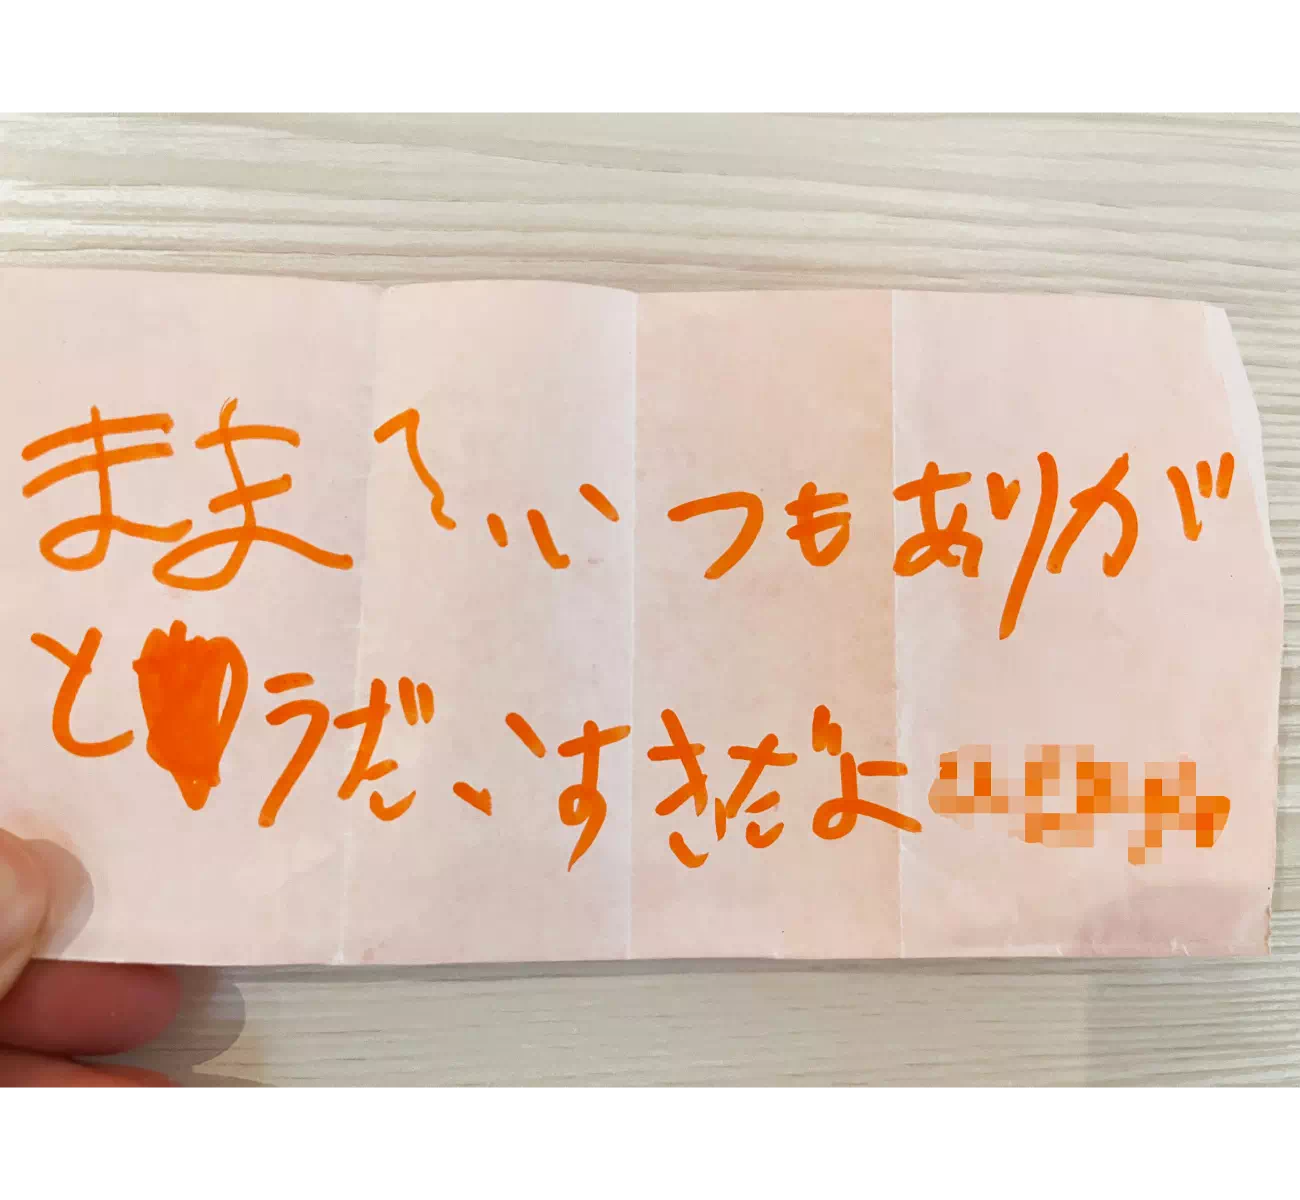 ままへいつもありが
とうだいすきだよ